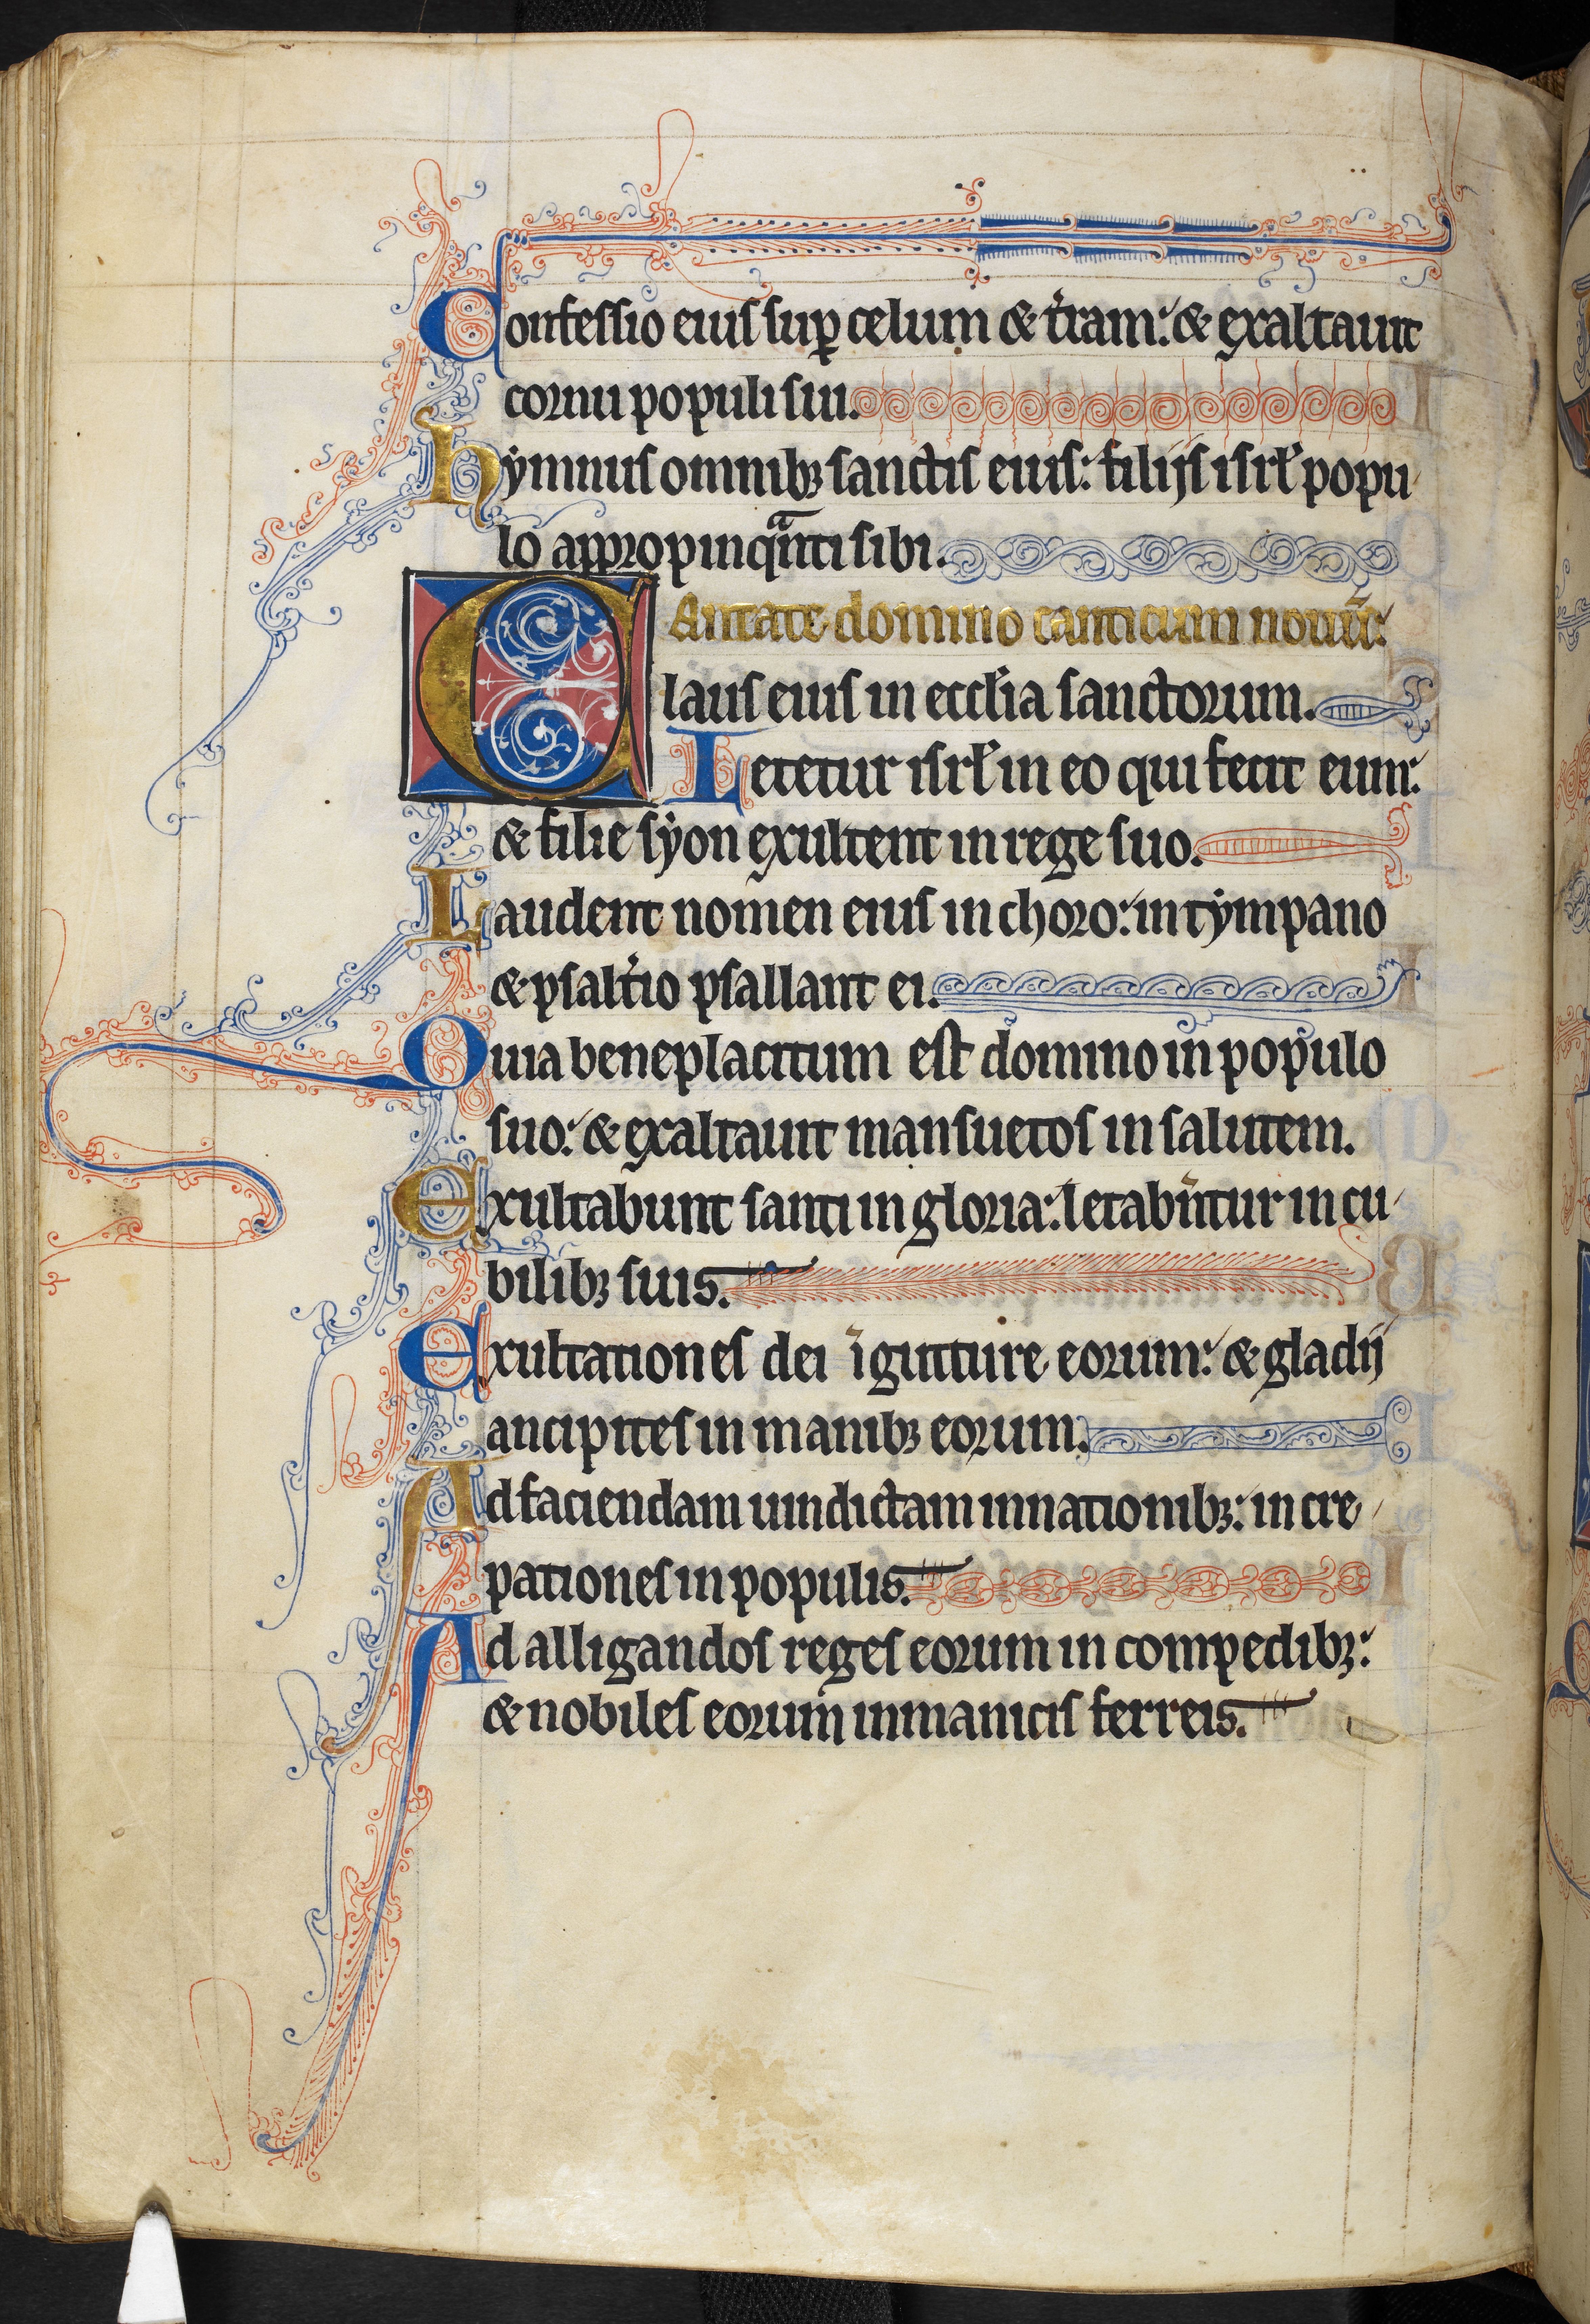 Confessio eius sup celum & t'ram: & exaltauit
cornu populi sui.
hymnus omnib; sanctis eius: filijs isrl popu
lo appropinqnti sibi.
Cantate domino canticum nouu:
laus eius in eccl'ia sanctorum.
Letetur isrl in eo qui fecit eum:
& filie syon exultent in rege suo.
Laudent nomen eius in choro: in tympano
& psalt'io psallant ei.
Quia beneplacitum est domino in populo
suo: & exaltauit mansuetos in salutem.
Exultabunt santi in gloria: letabūtur in cu
bilib; suis.
Exultationes dei ī gutture eorum: & gladij
ancipites in manib; eorum.
Ad faciendam uindictam in nationib;: in cre
pationes in populis.
Ad alligandos reges eorum in compedib;:
& nobiles eorum in manicis ferreis.